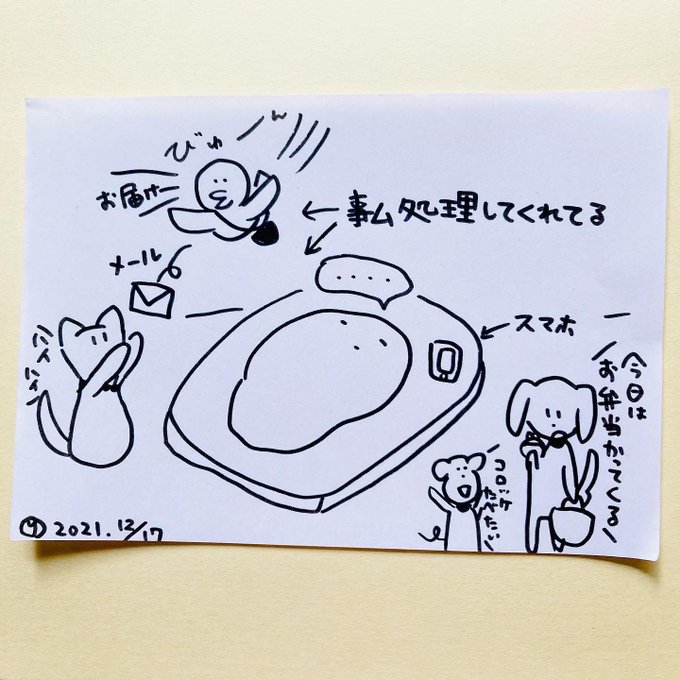 びゅ
ん
お届けー
事ム処理してくれてる
メール
スマホ
ハイハイ
今日は
お弁当かってくる
コロッケ
たべたい
2021.12/17